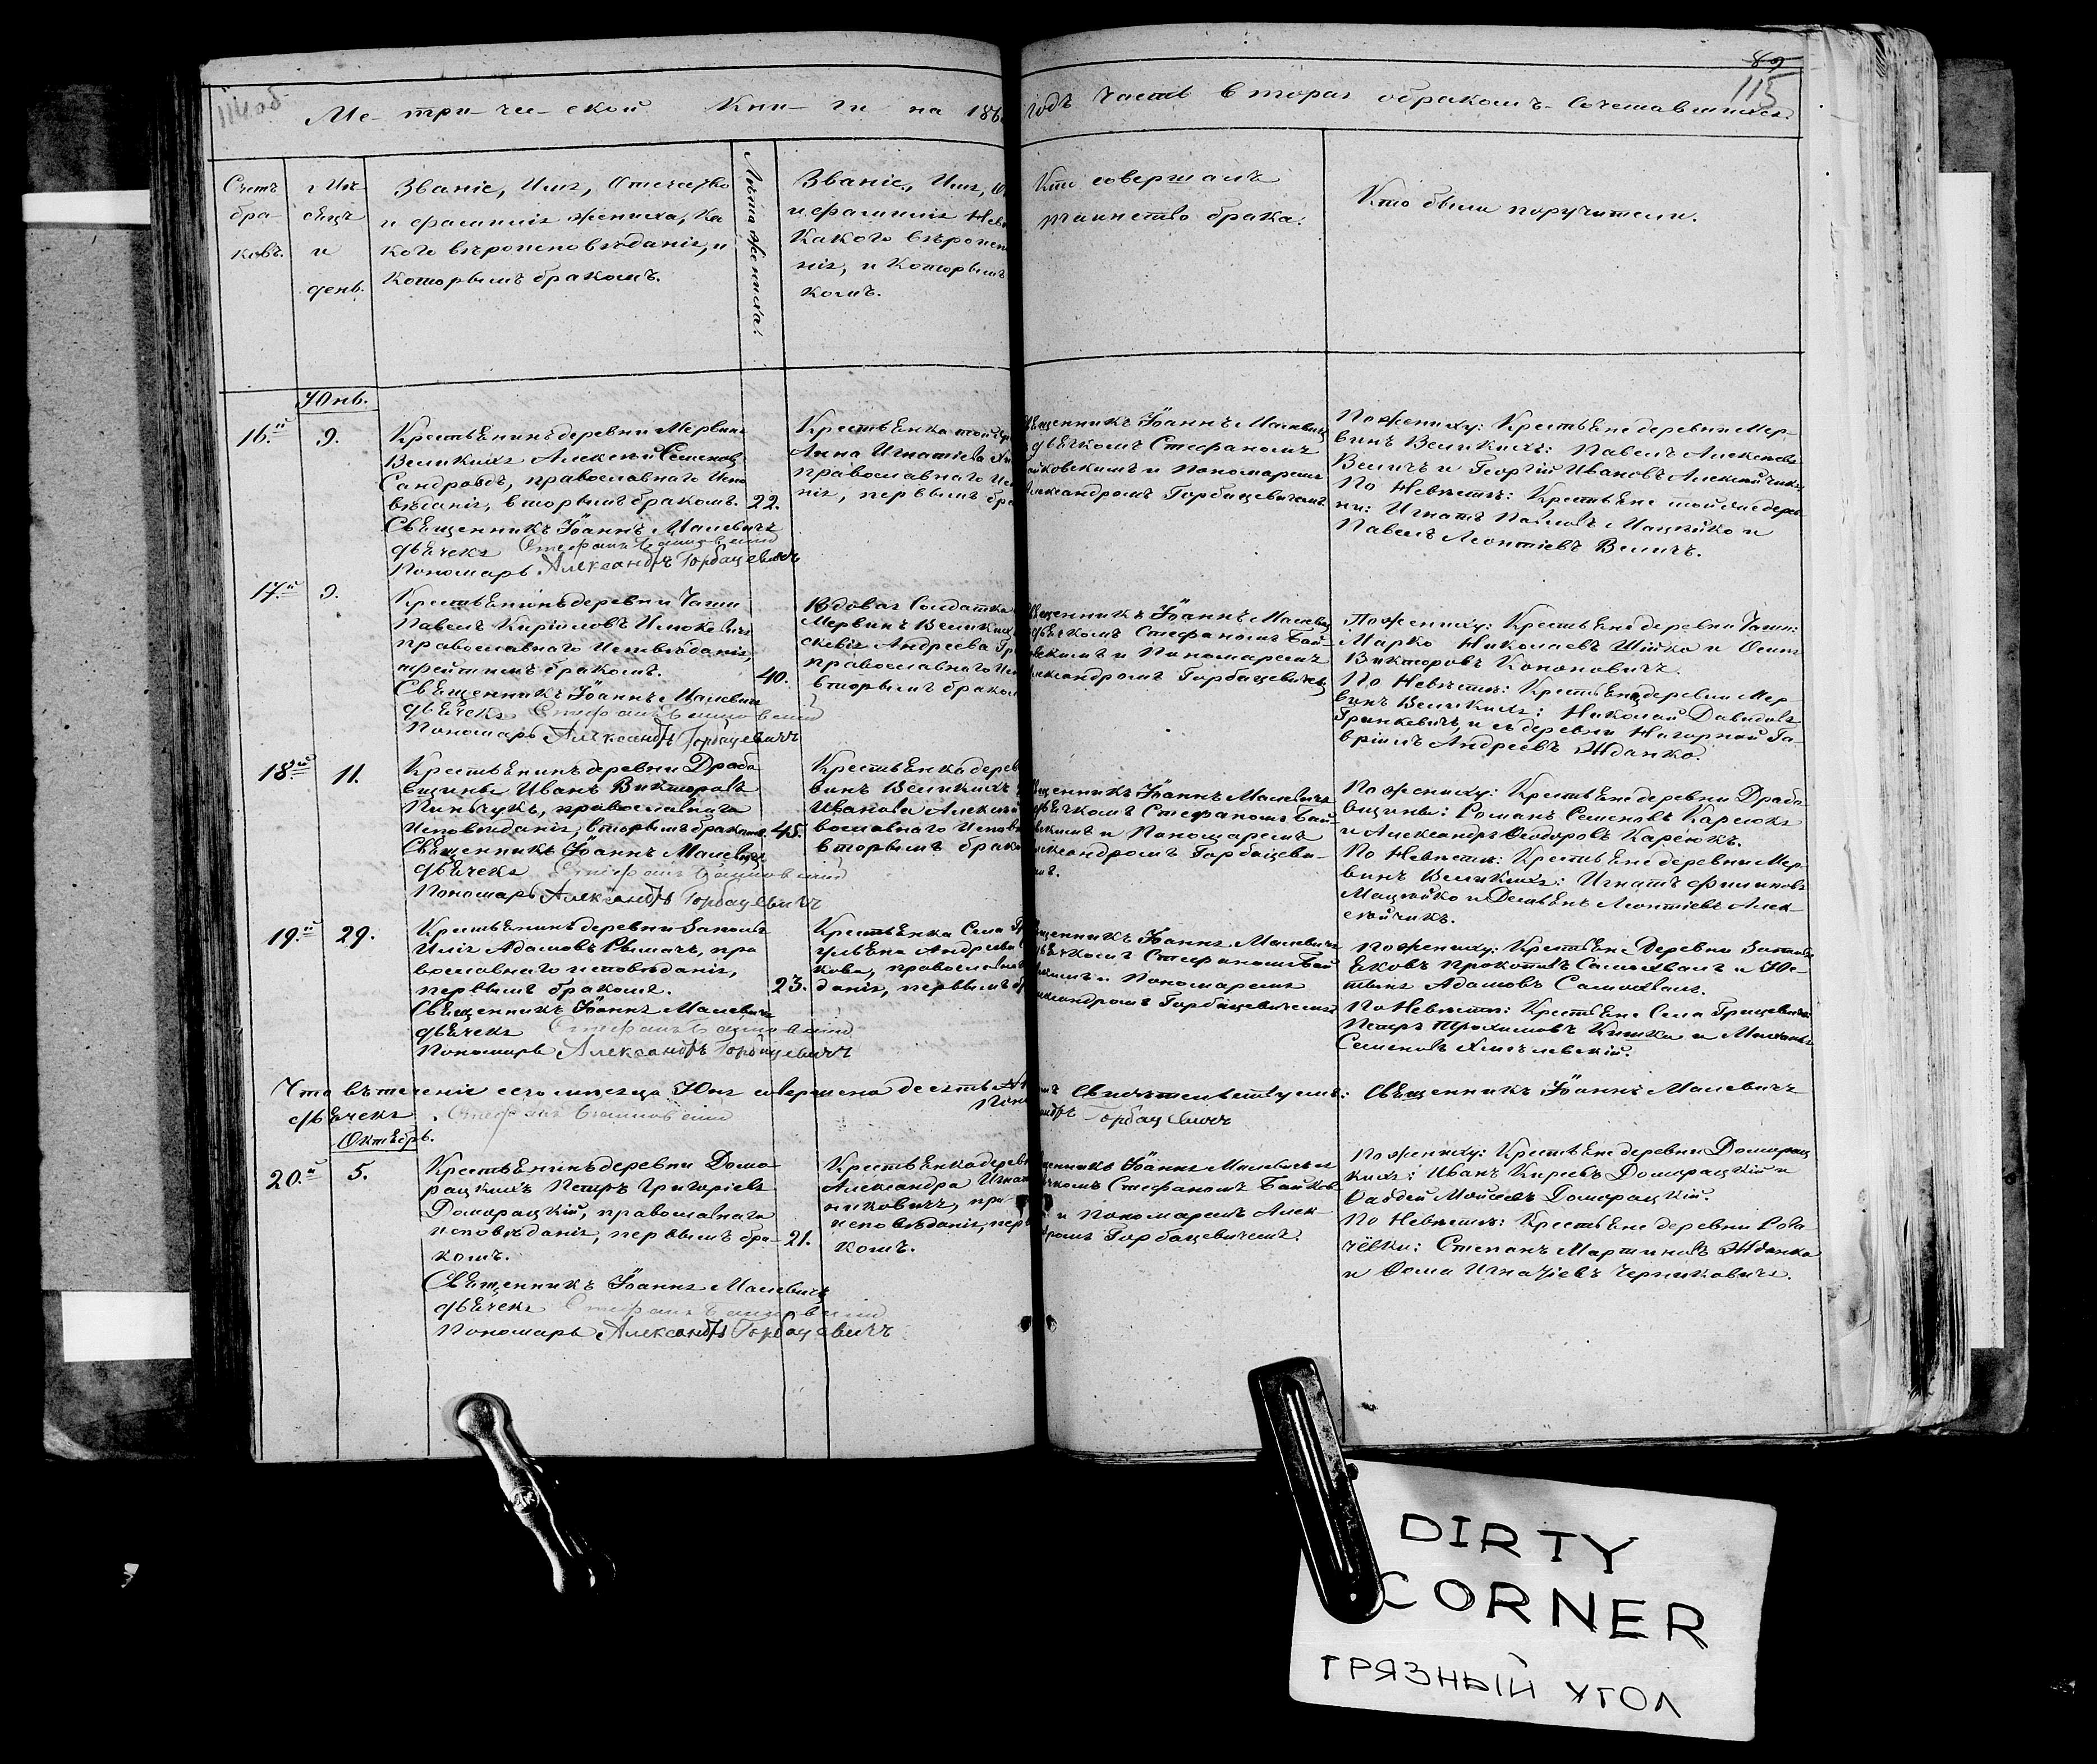 89
115
114об
Ме-три-че-ской Кни-ги на 186
годъ Часть вторая о бракомъ-сочетавшихся.
Счетъ браковъ.
Мѣсяцъ и день.
Званіе, Имя, Отечество
и фамилія жениха, ка
кого вѣроисповѣданія, и
которымъ бракомъ.
Лѣта жениха.
Званіе, Имя,
и фамилія Невѣ
какого вѣроиспо
нія, и которымъ
комъ.
Кто совершалъ
таинство брака.
Кто были поручители.
Юнь.
16.й 9.
Крестьянинъ деревни Мервинъ
Великихъ Алексѣй Семеновъ
православнаго Испо
вѣданія, вторымъ бракомъ. 22.
Священникъ Іоаннъ Малевичъ
дьячекъ Стефанъ
Пономарь Александръ Горбацевичъ
Крестьянка той
Анна Игнатіева
православнаго Испо
нія, первымъ бра
Священникъ Іоаннъ Малевичъ
дьячкомъ Стефаномъ
и Пономаремъ
Александромъ Горбацевичемъ.
По жениху: Крестьяне деревни Мер-
винъ Великихъ: Павелъ Алексѣевъ
Величъ и Георгій Ивановъ Алексѣйчикъ.
По Невѣстѣ: Крестьяне той же дерев-
ни: Игнатъ Павловъ Мацѣйко и
Павелъ Леонтіевъ Величъ.
17.й 9.
Крестьянинъ деревни Чаши
Павелъ Кириловъ
православнаго Исповѣданія,
третьимъ бракомъ. 40.
Священникъ Іоаннъ Малевичъ
дьячекъ Стефанъ
Пономарь Александръ Горбацевичъ
Вдовая Солдатка
Мервинъ Великихъ
Андреева
православнаго Исп
вторымъ бракомъ
Священникъ Іоаннъ Малевичъ
дьячкомъ Стефаномъ Бай-
и Пономаремъ
Александромъ Горбацевичемъ
По жениху: Крестьяне деревни Чаши:
Марко Николаевъ Шійко и Осипъ
Викторовъ Кононовичъ.
По Невѣстѣ: Крестьяне деревни Мер
винъ Великихъ: Николай Давидовъ
Гринкевичъ, и съ деревни Нагорной Га-
вріилъ Андреевъ Жданко.
18.й 11.
Крестьянинъ деревни Драба
вщины Иванъ Викторовъ
Пинчукъ, православнаго
Исповѣданія, вторымъ бракомъ. 45.
Священникъ Іоаннъ Малевичъ
дьячекъ Стефанъ
Пономарь Александръ Горбацевичъ
Крестьянка дерев
винъ Великихъ
Иванова
вославнаго Исповѣ
вторымъ брако
Священникъ Іоаннъ Малевичъ
дьячкомъ Стефаномъ Бай-
и Пономаремъ
Александромъ Горбацеви-
чемъ.
По жениху: Крестьяне деревни Драба
вщины: Романъ Семеновъ Карелюкъ
и Александръ Ѳеодоровъ Карелюкъ.
По Невѣстѣ: Крестьяне деревни Мер-
винъ Великихъ: Игнатъ Филиповъ
Мацѣйко и Демьянъ Леонтіевъ Алек-
сѣйчикъ.
19.й 29.
Крестьянинъ деревни Заполья
Илія Адамовъ Рымачъ, пра
вославнаго исповѣданія,
первымъ бракомъ. 23.
Священникъ Іоаннъ Малевичъ
дьячекъ Стефанъ
Пономарь Александръ Горбацевичъ
Крестьянка Села
ульяна Андреева
кова, православнаго
данія, первымъ
Священникъ Іоаннъ Малевичъ
дьячкомъ Стефаномъ Бай
и Пономаремъ
Александромъ Горбацевичемъ
По жениху: Крестьяне Деревни Заполья
Яковъ Прокопіевъ и Юс-
тинъ Адамовъ
По Невѣстѣ: Крестьяне Села Грицевичъ:
Петръ Трохимовъ Кишка и
Семеновъ Хмѣлевскій.
Что въ теченіе сего мѣсяца Юня совершено десять
Свидѣтельствуемъ: Священникъ Іоаннъ Малевичъ
дьячекъ Стефанъ
Горбацевичъ
Октябрь.
20.й 5.
Крестьянинъ деревни Домо-
рацкихъ Петръ Григоріевъ
Доморацкій, православнаго
исповѣданія, первымъ бра- 21.
комъ.
Священникъ Іоаннъ Малевичъ
дьячекъ Стефанъ
Пономарь Александръ Горбацевичъ
Крестьянка деревн
Александра Игнат
никовичъ, пра-
исповѣданія, перв
комъ.
Священникъ Іоаннъ Малевичъ
дьячкомъ Стефаномъ Байков
и Пономаремъ Алек-
Горбацевичемъ.
По жениху: Крестьяне деревни Доморац
кихъ: Иванъ Кировъ Доморацкій и
Ѳаддей Мойсеевъ Доморацкій.
По Невѣстѣ: Крестьяне деревни Рога
чёвки: Степанъ Мартиновъ Жданко
и Ѳома Игнатіевъ Черниковичъ.
DIRTY
CORNER
ГРЯЗНЫЙ УГОЛ